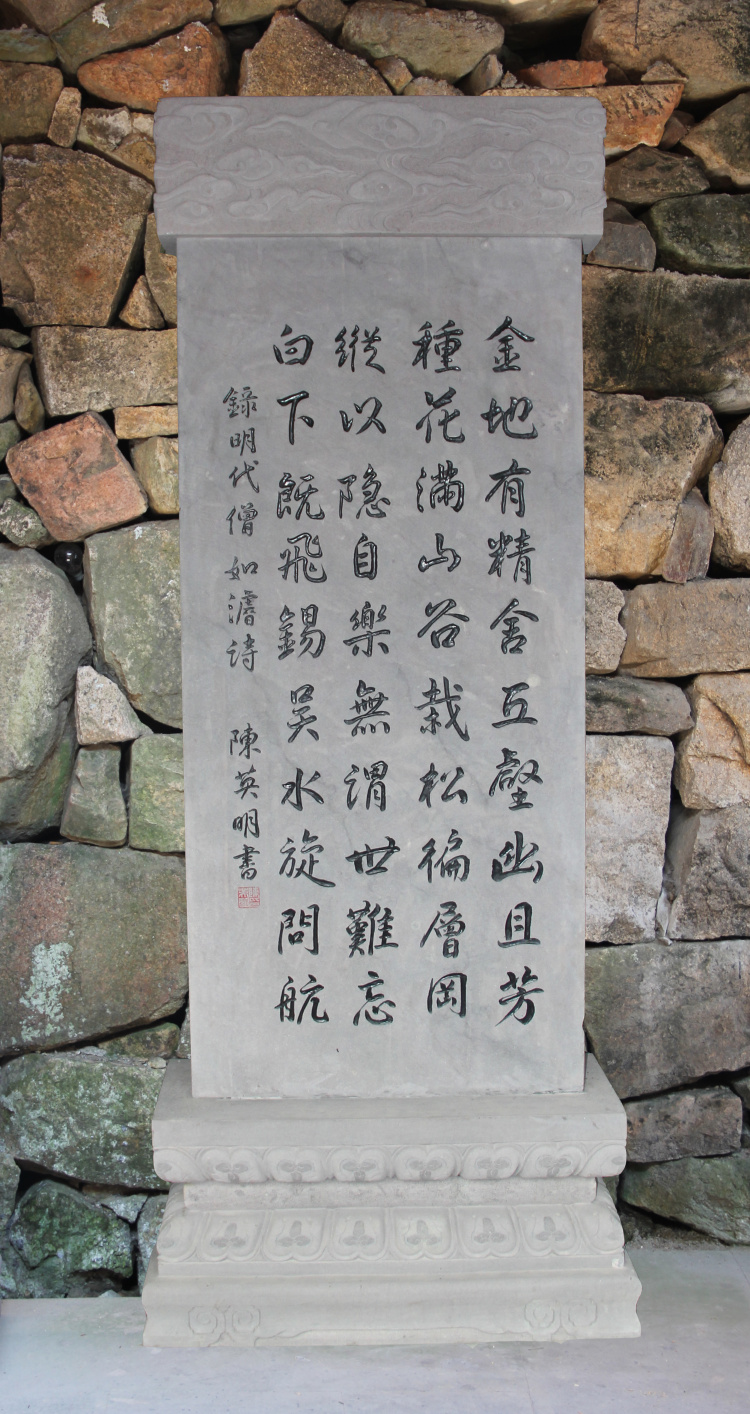 金地有精舍互壑幽且芳
種花滿山谷栽松徧層岡
縱以隐自樂無謂世難忘
白下既飛錫吴水旋問航
錄明代僧如濬诗 陳英明書